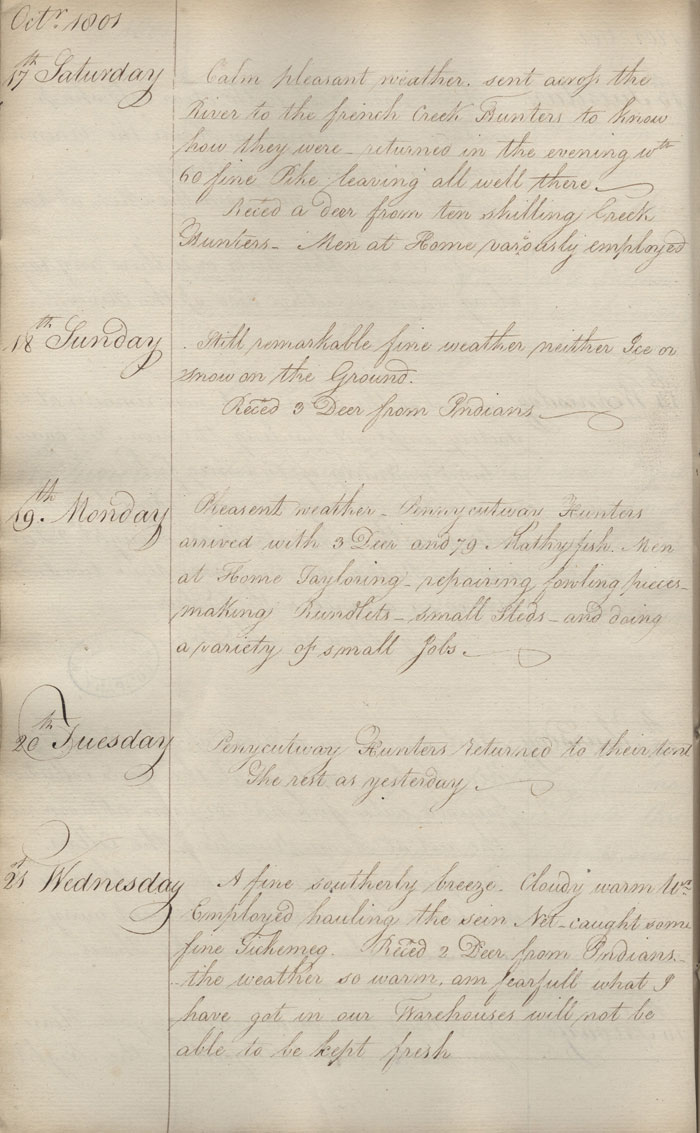 Octr. 1801
17th Saturday
Calm pleasant weather. sent across the
River to the french Creek Hunters to know
how they were - returned in the evening wth
60 fine Pike leaving all well there
Reced a deer from ten shilling Creek
Hunters - Men at Home variously employed
18th Sunday
Still remarkable fine weather neither Ice or
snow on the Ground.
Reced 3 Deer from Indians
19th. Monday
Pleasent weather - Pennycutway Hunters
arrived with 3 Deer and 79 Mathy fish. Men
at Home Tayloring - repairing fowling pieces -
making Rundlets - small Sleds - and doing
a variety of small Jobs.
20th Tuesday
Penycutway Hunters returned to their tent
The rest as yesterday.
21st Wednesday
A fine southerly breeze. Cloudy warm Wr.
Employed hauling the sein Net - caught some
fine Tickemeg. Reced 2 Deer from Indians -
the weather so warm, am fearfull what I
have got in our Warehouses will not be
able to be kept fresh